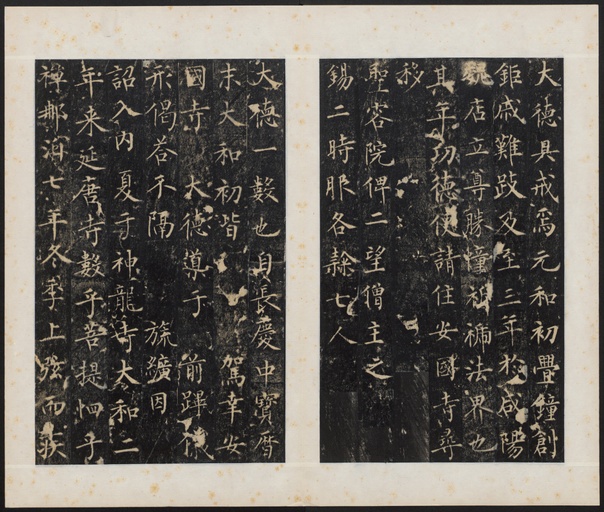 大德具戒焉元和初疊鐘創
鉅感難跂及至三年於咸陽
魏店立尊勝幢福法界也
其年功德使請住安國寺尋
移
聖容院俾二望僧主之
錫二時服各隸七人
大德一數也自長慶中寶曆
末大和初皆 駕幸安
國寺 大德導于 前蹕儀
形偈答不隔 旒纊因
詔入內夏于神龍寺大和二
年來延唐寺數乎菩提恤乎
禪那洎七年冬季上弦而疾